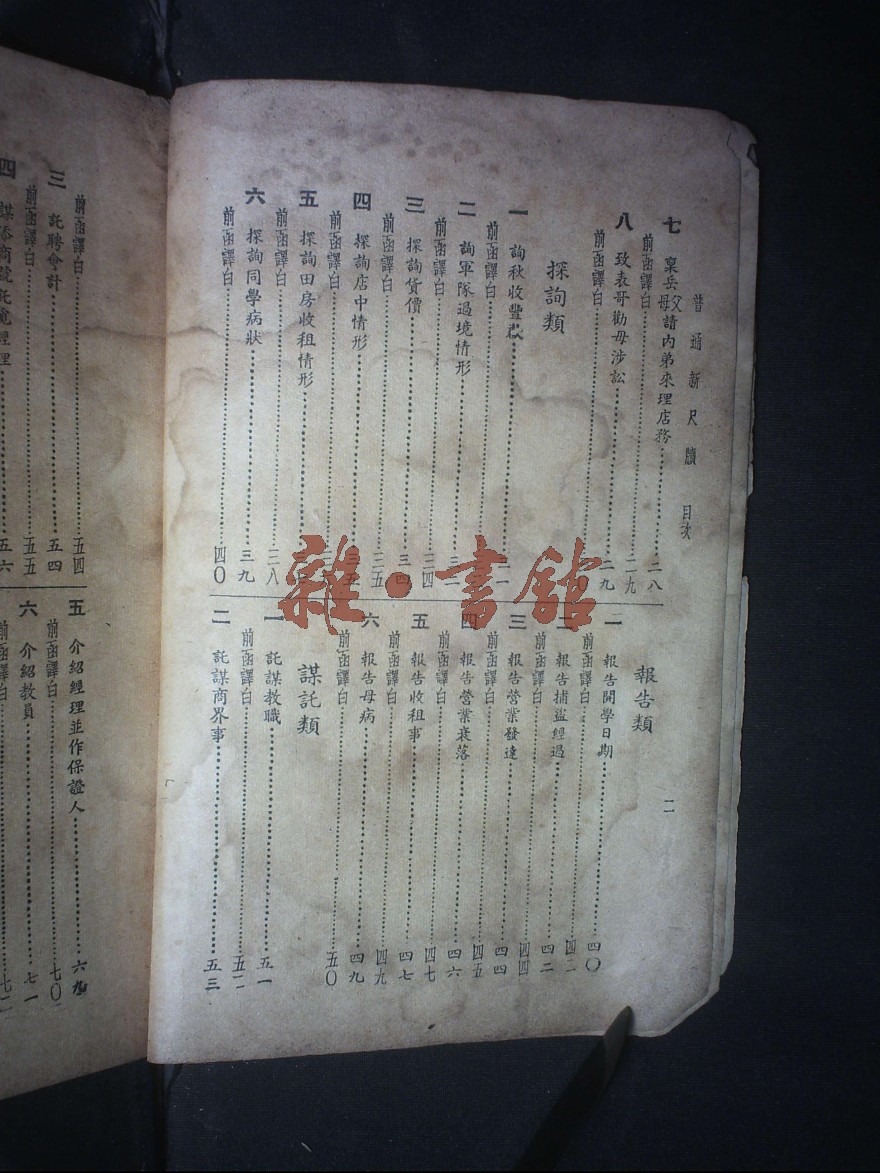 普通新尺牘 目次 二
七 稟岳父母請內弟來理店務 二八
前函譯白 二九
八 致表哥勸毋涉訟 二九
前函譯白
探詢類
一 詢秋收豐歉
前函譯白
二 詢軍隊過境情形
前函譯白 三四
三 探詢貨價 三四
前函譯白 三五
四 探詢店中情形
前函譯白
五 探詢田房收租情形
前函譯白 三八
六 探詢同學病狀 三九
前函譯白 四〇
報告類
一 報告開學日期 四〇
前函譯白 四二
二 報告捕盜經過 四二
前函譯白 四四
三 報告營業發達 四四
前函譯白 四五
四 報告營業衰落 四六
前函譯白 四七
五 報告收租事 四七
前函譯白 四九
六 報告母病 四九
前函譯白 五〇
謀託類
一 託謀教職 五一
前函譯白 五二
二 託謀商界事 五三
前函譯白 五四
三 託聘會計 五四
前函譯白 五五
四 經理 五六
五 介紹經理並作保證人 六九
前函譯白 七〇
六 介紹教員 七一
前函譯白 七二
雜·書館